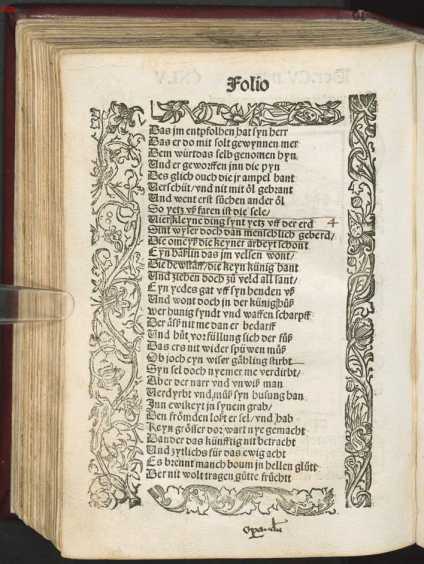 Folio
Das jm entpfolhen hat syn herr
Das er do mit solt gewynnen mer
Dem würt das selb genomen hyn
Und er geworffen jnn die pyn
Des glich ouch die jr ampel hant
Verschüt / vnd nit mit öl gebrant
Und went erst süchen ander öl
So yetz vß faren ist die sele /
Vier kleyne ding synt yetz vff der erd 4
Sint wyser doch dan menschlich geberd /
Die omeyß die keyner arbeyt schont
Eyn häßlin das jm velsen wont /
Die hewstäff / die keyn künig hant
Und ziehen doch zü veld all sant /
Eyn yedes gat vff syn henden vß
Und wont doch jn der künig hüß
wer hunig syndt vnd waffen scharpff
Der äsß nit me dan er bedarff
Und hüt vor füllung sich der süß
Das ers nit wider spüwen müß
Ob joch eyn wiser gähling stirbt
Syn sel doch nyemer me verdirbt /
Aber der narr vnd vnwiß man
Verdyrbt vnd müß syn husung han
Jnn ewikeyt jn synem grab /
Den frömden loßt er sel / vnd hab
Keyn grösser dor wart nye gemacht
Dan der das künfftig nit betracht
Und zytlichs für das ewig acht
Es brennt manch boum jn hellen glütt
Der nit wolt tragen gütte früchtt